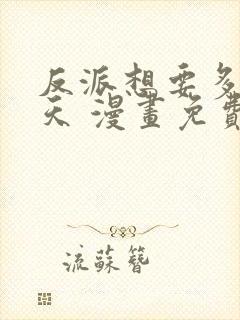 反派想要多
天 漫畫免費
流蘇簪